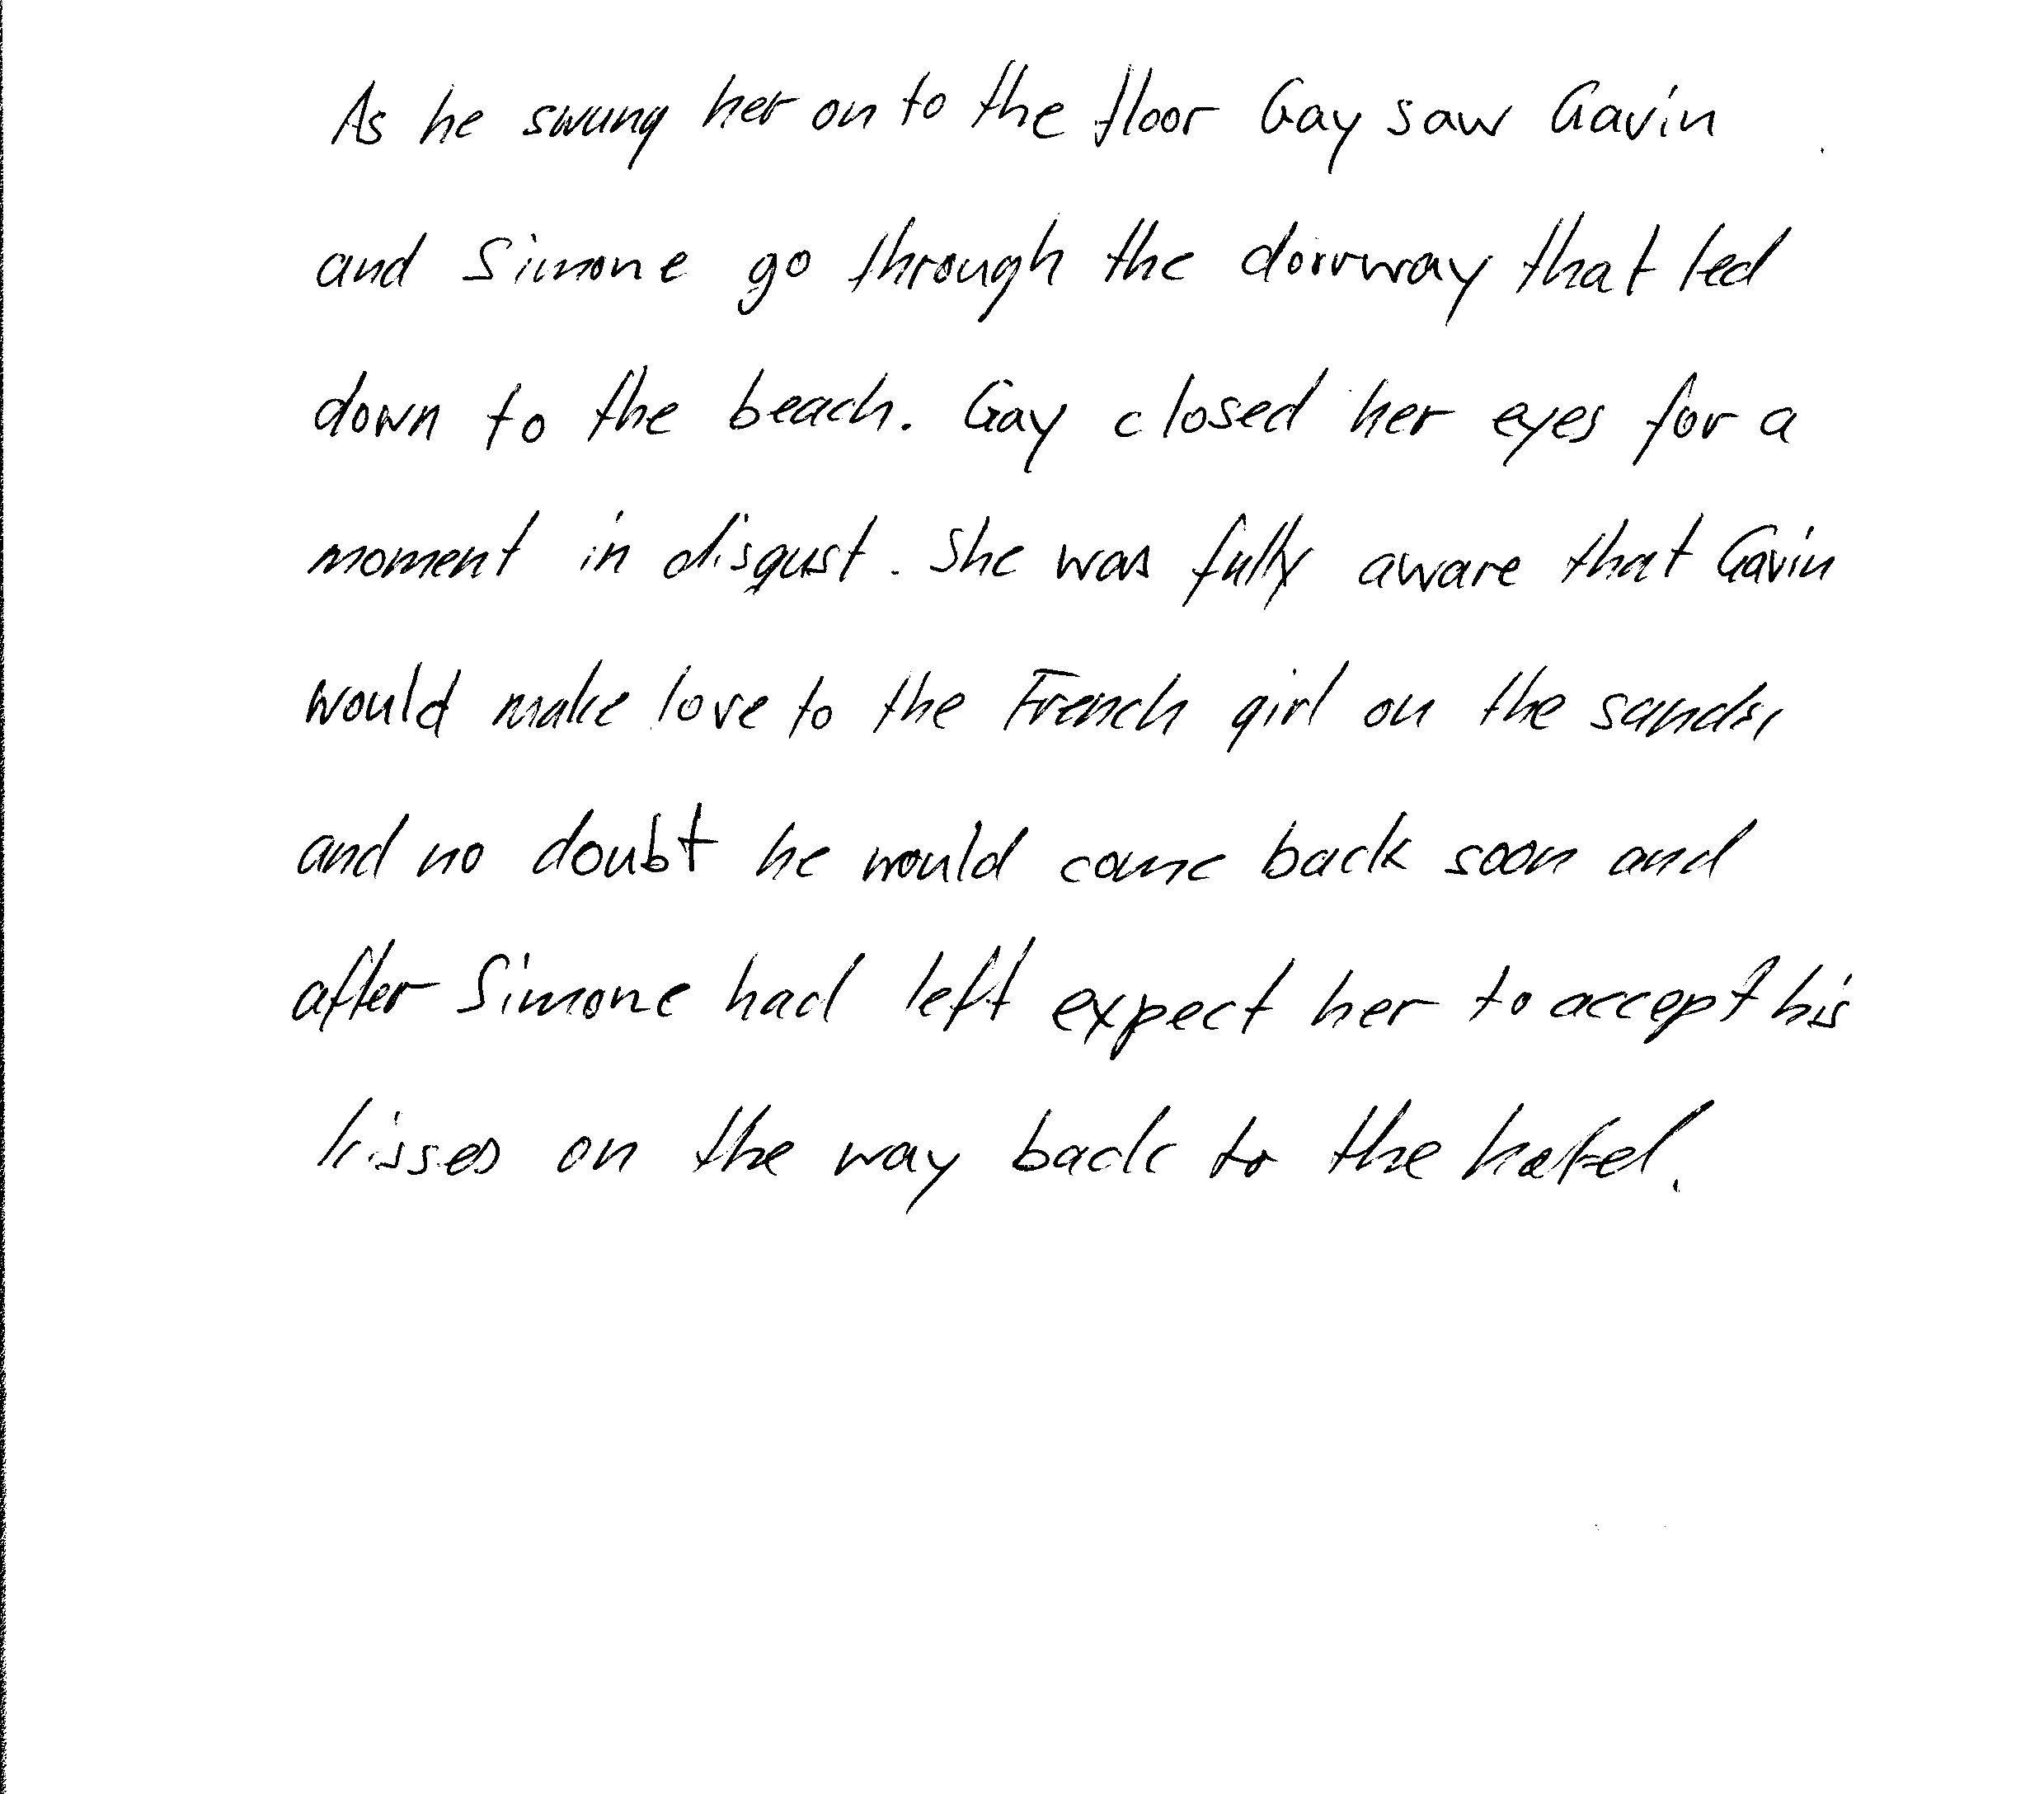 As he swung her on to the floor Gay saw Gavin
and Simone go through the doorway that led
down to the beach. Gay closed her eyes for a
moment in disgust. She was fully aware that Gavin
would make love to the French girl on the sands,
and no doubt he would come back soon and
after Simone had left expect her to accept his
kisses on the way back to the hotel.